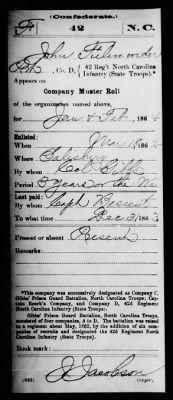 (Confederate.)
F 42 N.C.
John
Pvt, Co. D, 42 Reg't North Carolina
Infantry (State Troops).*
Appears on
Company Muster Roll
of the organization named above,
for Jan & Feb, 186
Enlisted:
When Mar 18, 186
Where Salisbury
By whom Col Gibbs
Period 3 years or the War
Last paid:
By whom Capt
To what time Dec 31, 186
Present or absent Present
Remarks:
*This company was successively designated as Company C,
Gibbs' Prison Guard Battalion, North Carolina Troops; Cap-
tain Company, and Company D, 42d Regiment
North Carolina Infantry (State Troops).
Gibbs' Prison Guard Battalion, North Carolina Troops,
consisted of four companies, A to D. The battalion was raised
to a regiment about May, 1862, by the addition of six com-
panies of recruits and designated the 42d Regiment North
Carolina Infantry (State Troops).
Book mark:
(642)
J. Jacobson
Copyist.